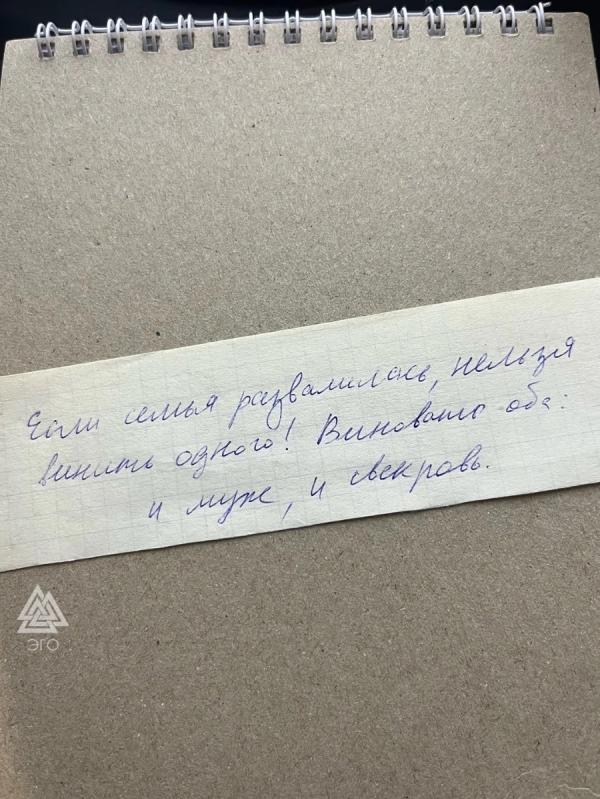 Если семья развалилась, нельзя
винить одного! Виноваты оба:
и муж, и свекровь.
ЭГО